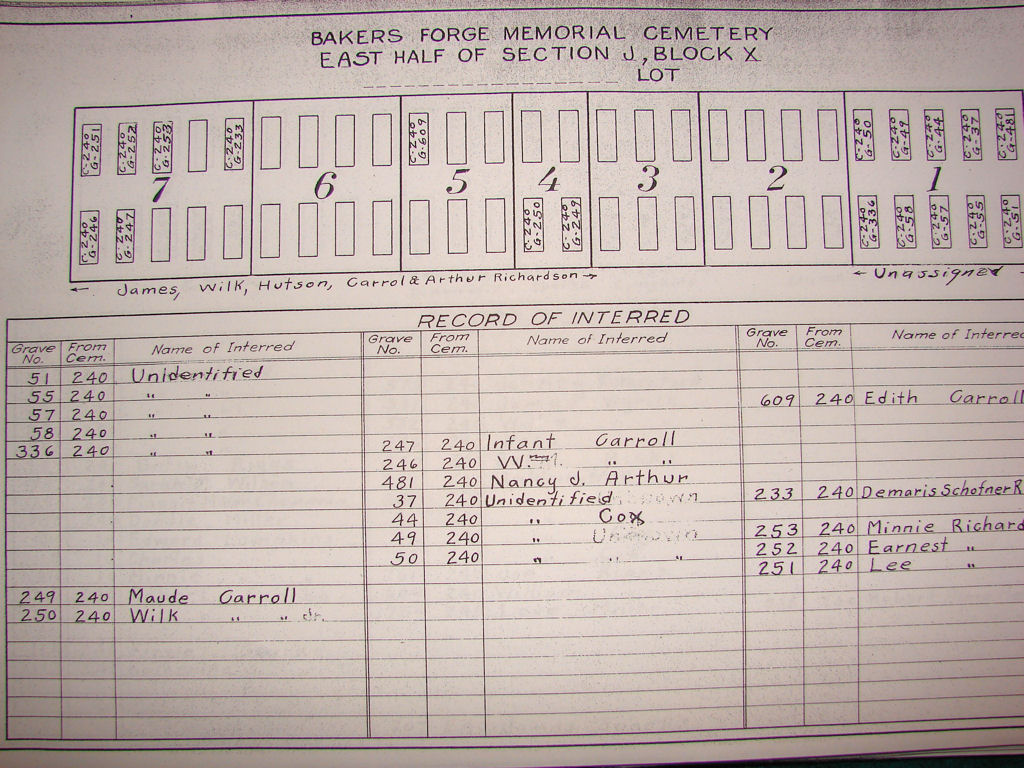 BAKERS FORGE MEMORIAL CEMETERY
EAST HALF OF SECTION J, BLOCK X
LOT
C-240 G-251 C-240 G-252 C-240 G-253 C-240 G-233 C-240 G-609 C-240 G-50 C-240 G-49 C-240 G-44 C-240 G-37 C-240 G-481
7 6 5 4 3 2 1
C-240 G-246 C-240 G-247 C-240 G-250 C-240 G-249 C-240 G-336 C-240 G-58 C-240 G-57 C-240 G-55 C-240 G-51
James, Wilk, Hutson, Carrol & Arthur Richardson
Unassigned
RECORD OF INTERRED
Grave No. From Cem. Name of Interred Grave No. From Cem. Name of Interred Grave No. From Cem. Name of Interred
51 240 Unidentified
55 240 " " 609 240 Edith Carroll
57 240 " "
58 240 " "
336 240 " " 247 240 Infant Carroll
246 240 W. " "
481 240 Nancy J. Arthur
37 240 Unidentified 233 240 Demaris Schofner R
44 240 " Cox
49 240 " Unknown 253 240 Minnie Richard
50 240 " " " 252 240 Earnest "
251 240 Lee "
249 240 Maude Carroll
250 240 Wilk " " Jr.